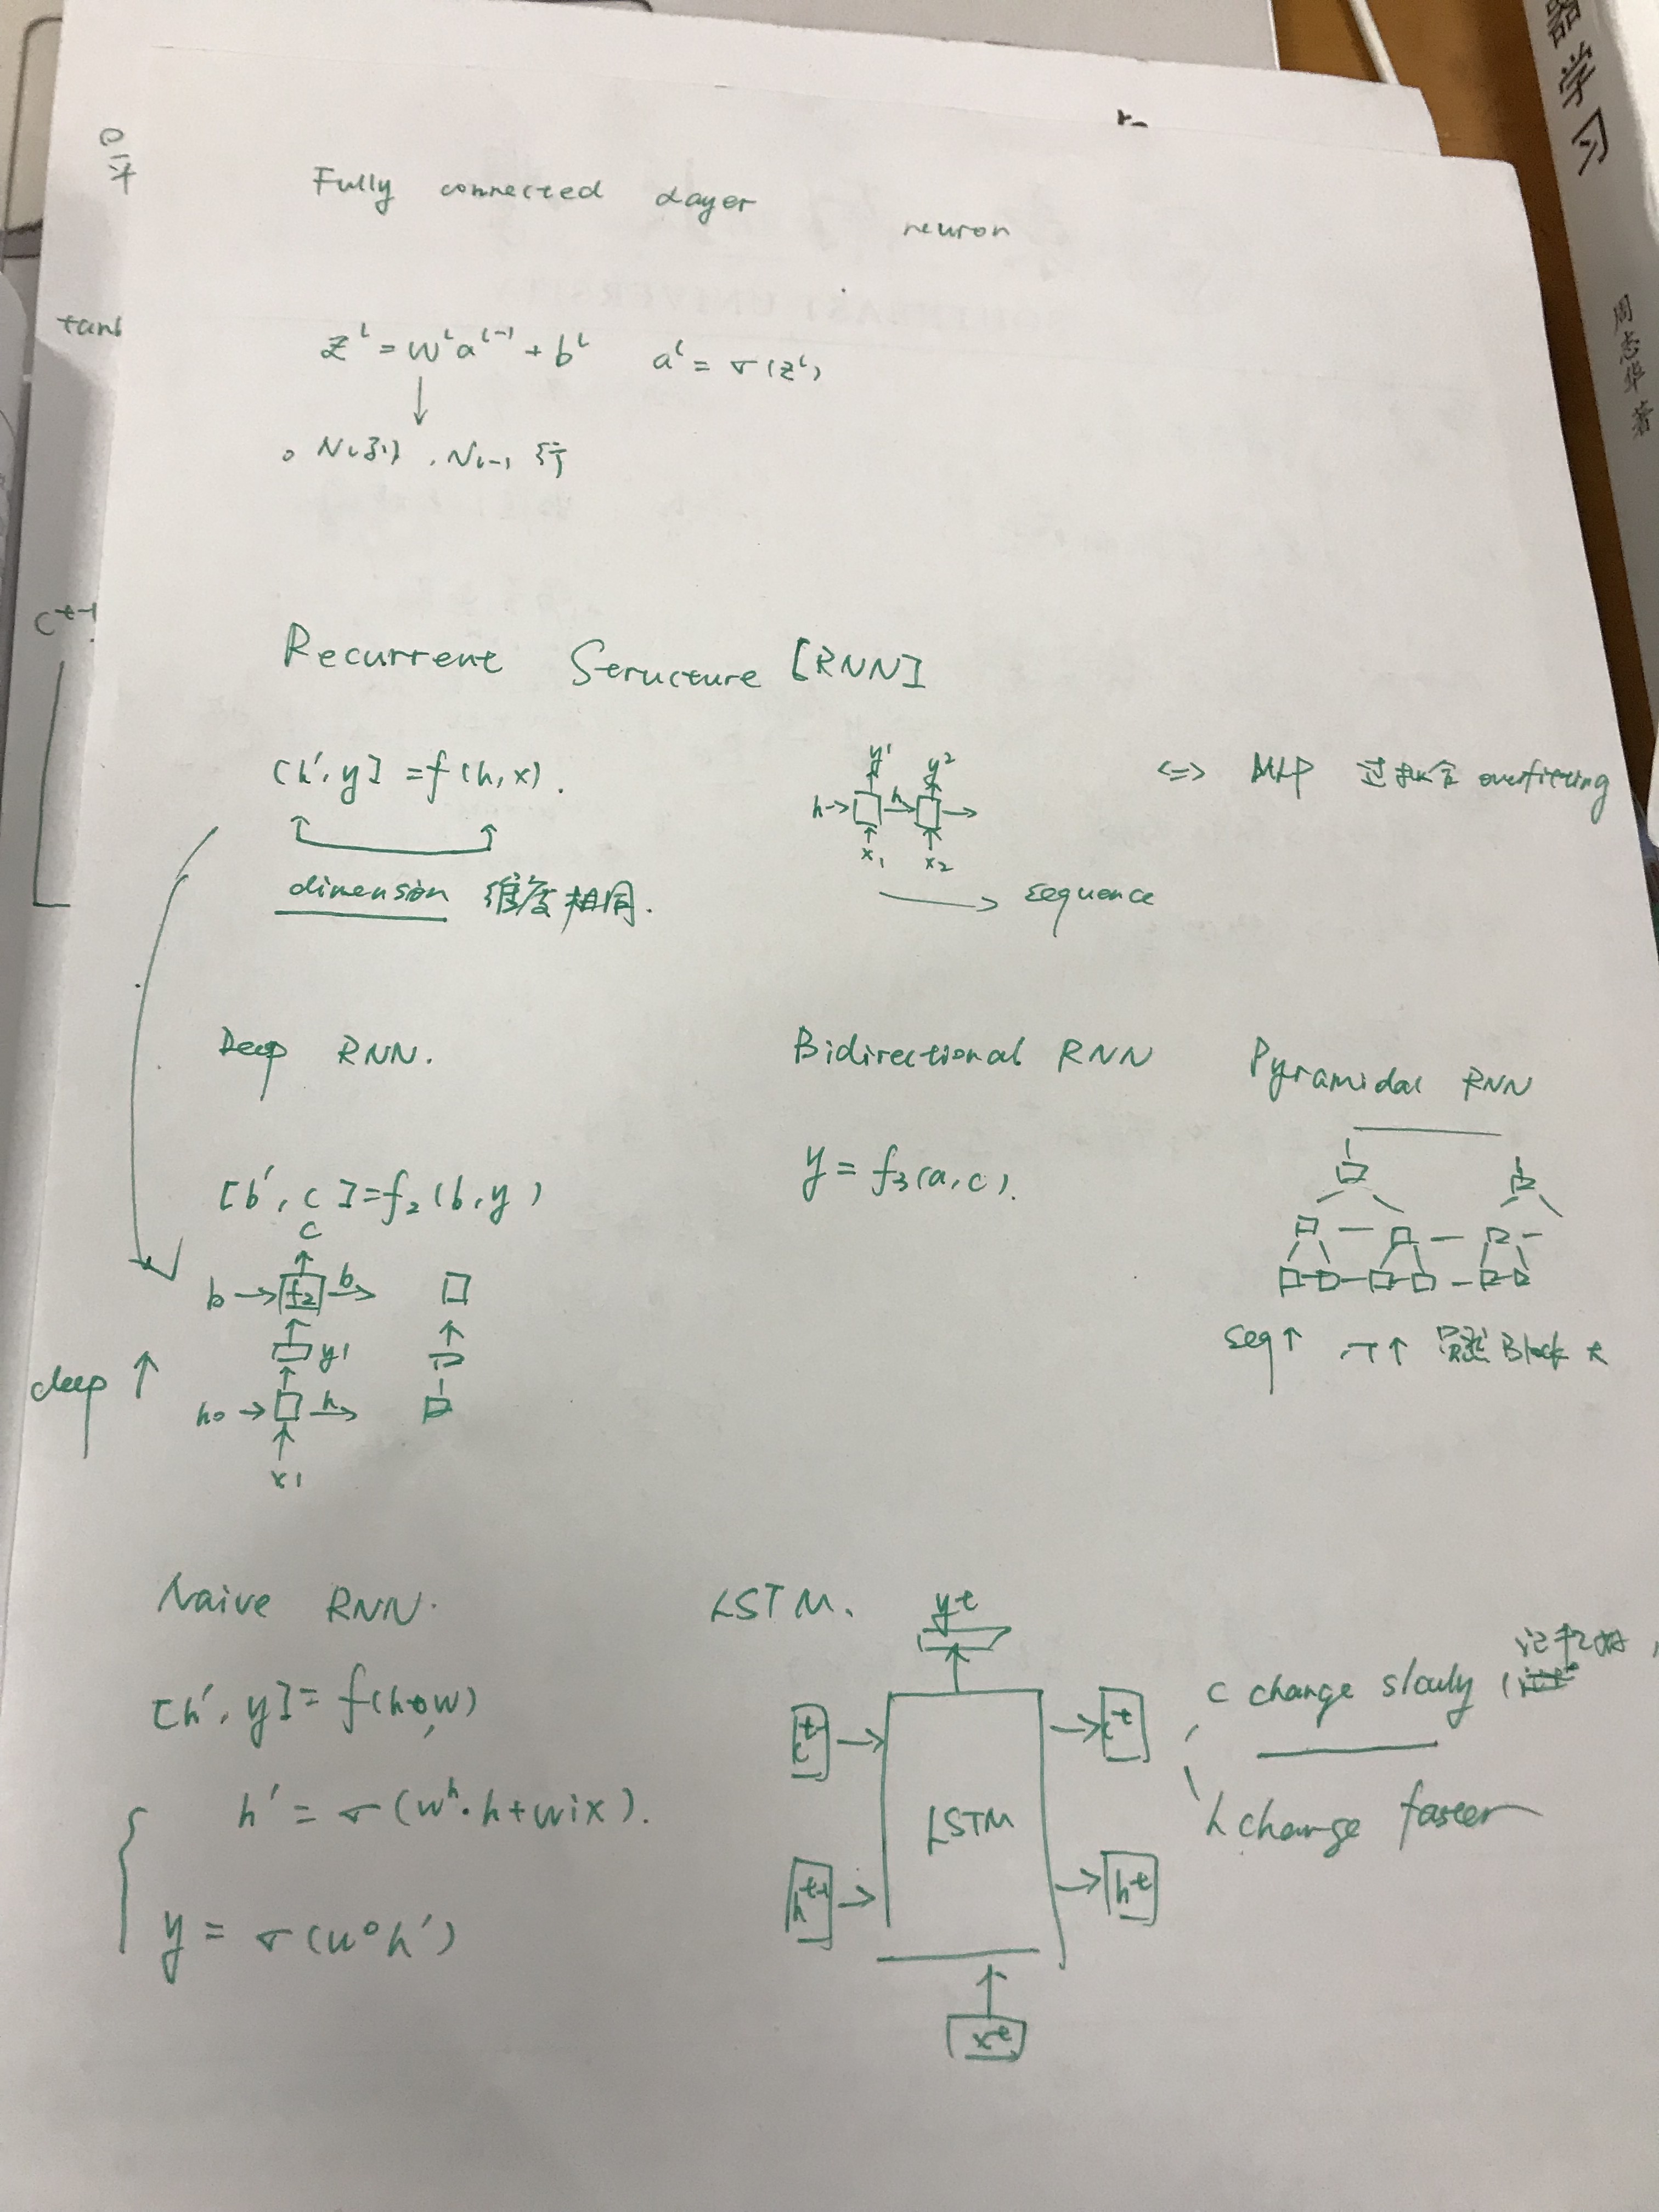 Fully connected Layer
neuron
z^l = w^l a^{l-1} + b^l   a^l = σ(z^l)
N_l列, N_{l-1} 行
Recurrent Structure [RNN]
[h', y] = f(h, x).
dimension 维度相同.
y^1 y^2
h → h →
x_1 x_2
→ sequence
<=> MLP 过拟合 overfitting
Deep RNN.
[b', c] = f_2(b, y)
c
b → f_2 b →
y1
h0 → h →
x1
deep ↑
Bidirectional RNN
y = f_3(a, c).
Pyramidal RNN
Seq ↑
Block 大
Naive RNN.
[h', y] = f(h, w)
h' = σ(w^h · h + w^i x).
y = σ(w^o h')
LSTM.
y^t
c^{t-1} → c^t
LSTM
h^{t-1} → h^t
x^t
c change slowly (
h change faster
tanh
c^{t-1}
器学习
周志华 著